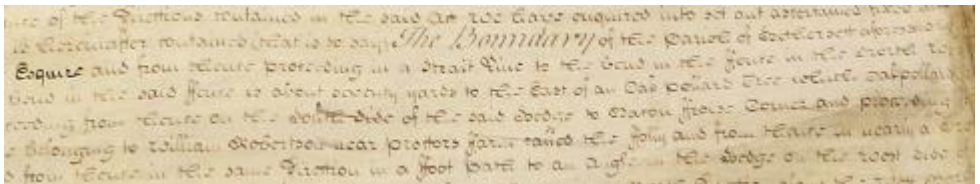 of the Directions contained in the said Act we have enquired into set out ascertained fixed
is hereinafter contained (that is to say) The Boundary of the Parish of Hethersett aforesaid
Esquire and from thence proceeding in a Strait Line to the bend in the fence in the North
bend in the said fence is about seventy yards to the East of an Oak pollard Tree which Oakpollard
from thence on the South Side of the said Hedge to Corner and proceeding
Belonging to William Robertson near proctors farm called the Folly and from thence in nearly a
from thence in the same Direction in a foot path to an Angle in the Hedge on the West side of